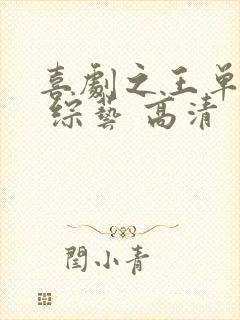 喜劇之王单
綜藝 高清
閆小青